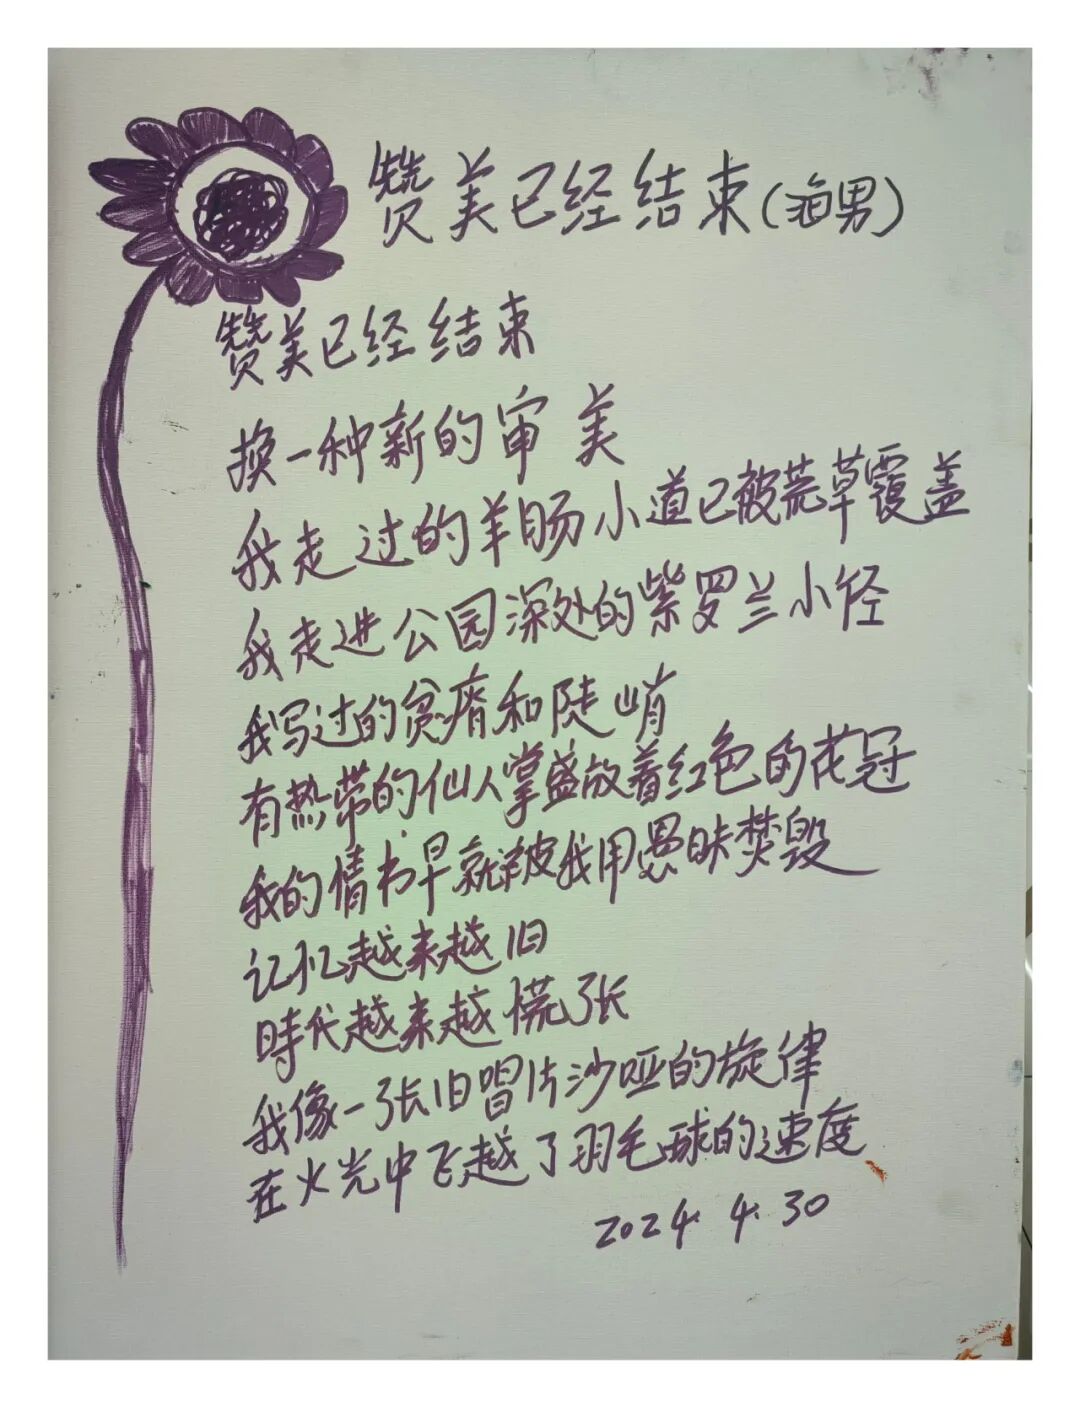 赞美已经结束(海男)
赞美已经结束
换一种新的审美
我走过的羊肠小道已被荒草覆盖
我走进公园深处的紫罗兰小径
我写过的贫瘠和陡峭
有热带的仙人掌盛放着红色的花冠
我的情书早就被我用愚昧焚毁
记忆越来越旧
時代越来越慌张
我像一张旧唱片沙哑的旋律
在火光中飞越了羽毛球的速度
2024.4.30